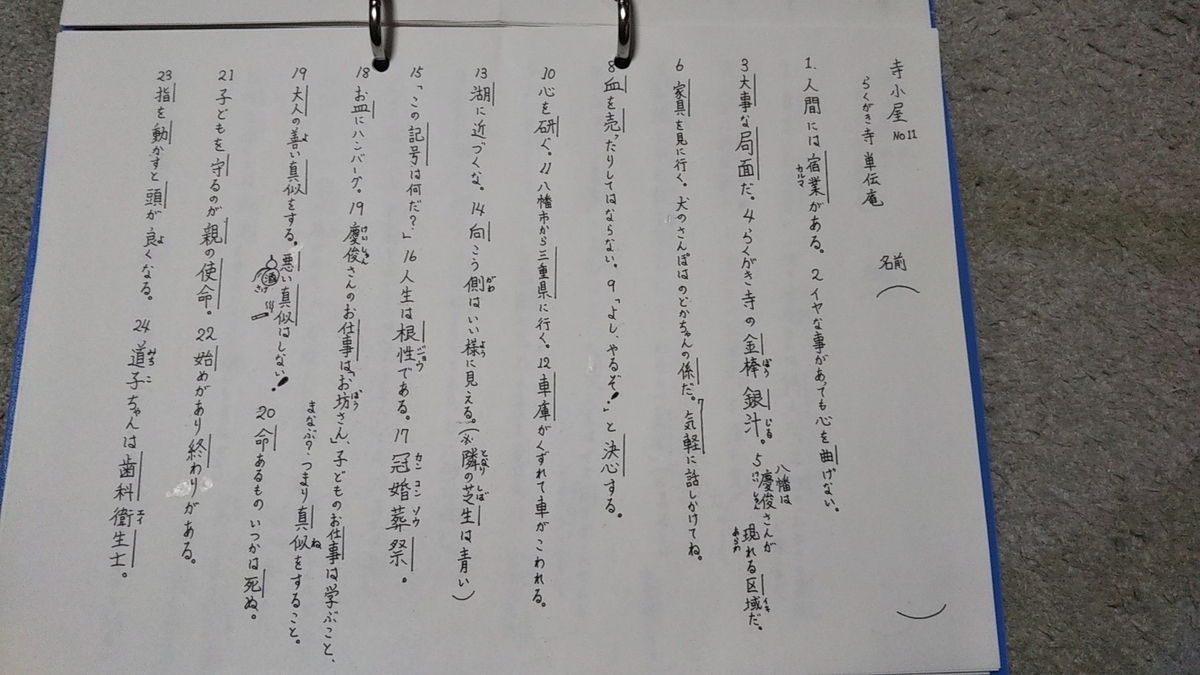 寺小屋 No11
らくがき寺 単伝庵
名前 （ ）
1. 人間には宿業がある。 2 イヤな事があっても心を曲げない。
カルマ
3 大事な局面だ。 4 らくがき寺の金棒 銀汁。 5 八幡は慶俊さんが 現れる区域だ。
ぼう じる けいしゅん あらわ イキ
6 家具を見に行く。犬のさんぽはのどかちゃんの係だ。 7 気軽に話しかけてね。
8 血を売ったりしてはならない。 9 「よし、やるぞ!」と決心する。
10 心を研ぐ。 11 八幡市から三重県に行く。 12 車庫がくずれて車がこわれる。
13 湖に近づくな。 14 向こう側はいい様に見える。(※隣の芝生は青い)
がわ よう となり しば
15 「この記号は何だ?」 16 人生は根性である。 17 冠婚葬祭。
ごじょう カン コン ソウ
18 お皿にハンバーグ。 19 慶俊さんのお仕事は「お坊さん」、子どものお仕事は学ぶこと、
けいしゅん ぼう
まなぶ?つまり真似をすること。
ね
19 大人の善い真似をする。悪い真似はしない! 20 命あるものいつかは死ぬ。
よ
酒
さけ
21 子どもを守るのが親の使命。 22 始めがあり終わりがある。
23 指を動かすと頭が良くなる。 24 道子ちゃんは歯科衛生士。
よ みちこ エイ